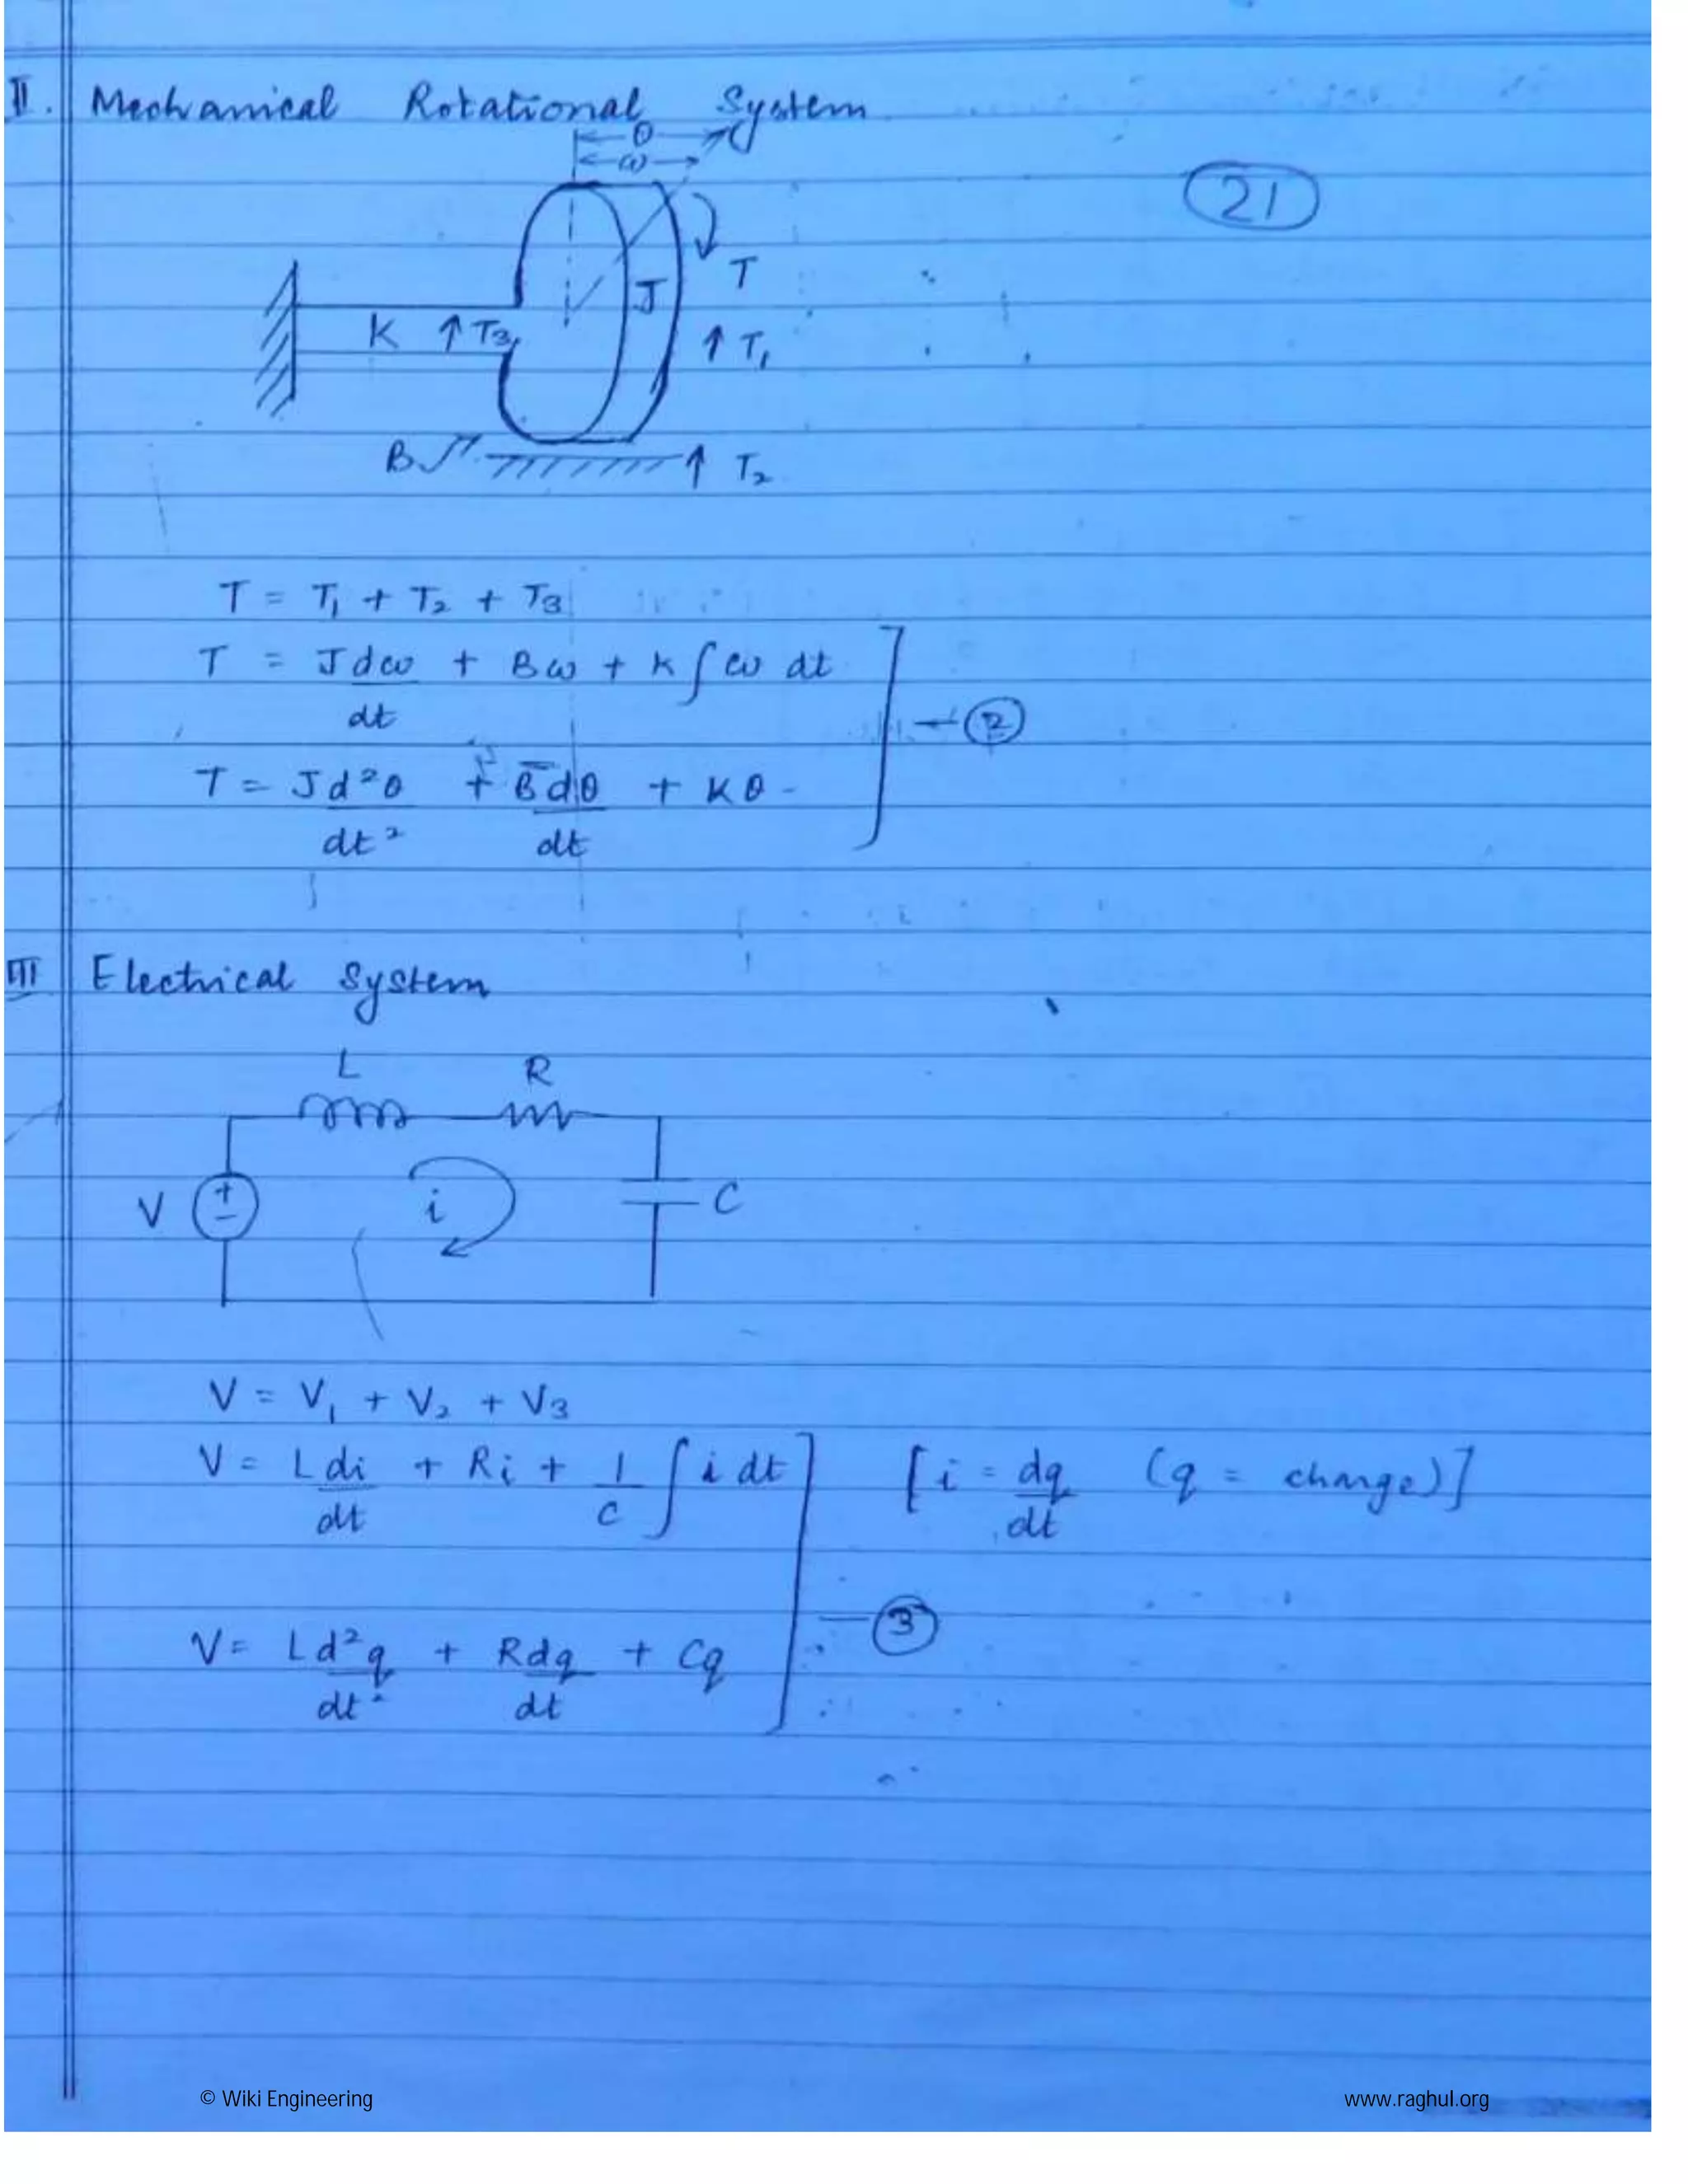 II. Mechanical Rotational System
θ
ω
21
T
J
K ↑ T3
↑ T1
B
↑ T2
T = T1 + T2 + T3
T = J dω/dt + Bω + K ∫ ω dt
— 2
T = J d²θ/dt² + B dθ/dt + Kθ
III Electrical System
L R
V + - i C
V = V1 + V2 + V3
V = L di/dt + Ri + 1/C ∫ i dt [ i = dq/dt (q = charge) ]
— 3
V = L d²q/dt² + R dq/dt + Cq
© Wiki Engineering www.raghul.org